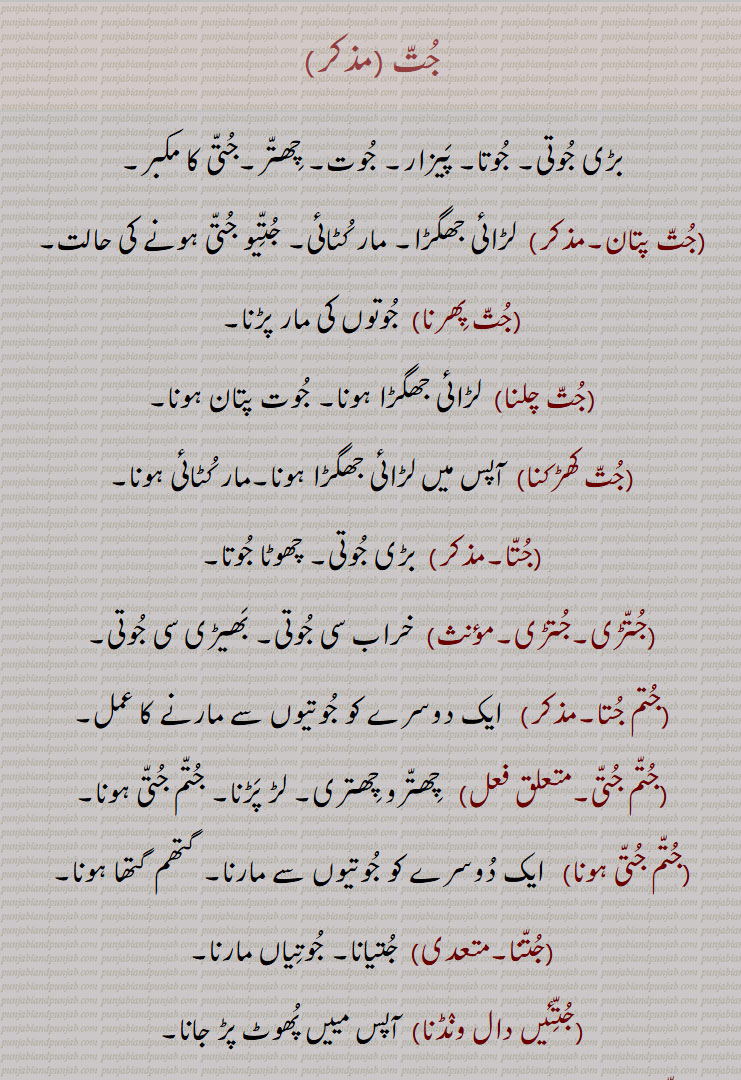 جُتّ (مذکر)
بڑی جُوتی۔ جُوتا۔ پَیزار۔ جُوت۔ چِھتّر۔جُتّی کا مکبر۔
(جُتّ پتان۔مذکر) لڑائی جھگڑا۔ مار کُٹائی۔ جُتِّیو جُتّی ہونے کی حالت۔
(جُتّ پِھرنا) جُوتوں کی مار پڑنا۔
(جُتّ چلنا) لڑائی جھگڑا ہونا۔ جُوت پتان ہونا۔
(جُتّ کھڑکنا) آپس میں لڑائی جھگڑا ہونا۔مار کُٹائی ہونا۔
(جُتّا۔مذکر) بڑی جُوتی۔ چھوٹا جُوتا۔
(جُتّڑی۔جُتڑی۔مؤنث) خراب سی جُوتی۔ بَھیڑی سی جُوتی۔
(جُتم جُتا۔مذکر) ایک دوسرے کو جُوتیوں سے مارنے کا عمل۔
(جُتّم جُتّی۔متعلق فعل) چِھتّر و چِھتری۔ لڑ پَڑنا۔ جُتّم جُتّی ہونا۔
(جُتّم جُتّی ہونا) ایک دُوسرے کو جُوتیوں سے مارنا۔ گتھم گتھا ہونا۔
(جُتّنا۔متعدی) جُتیانا۔ جُوتِیاں مارنا۔
(جُتِّئیں دال ونْڈنا) آپس مییں پُھوٹ پڑ جانا۔